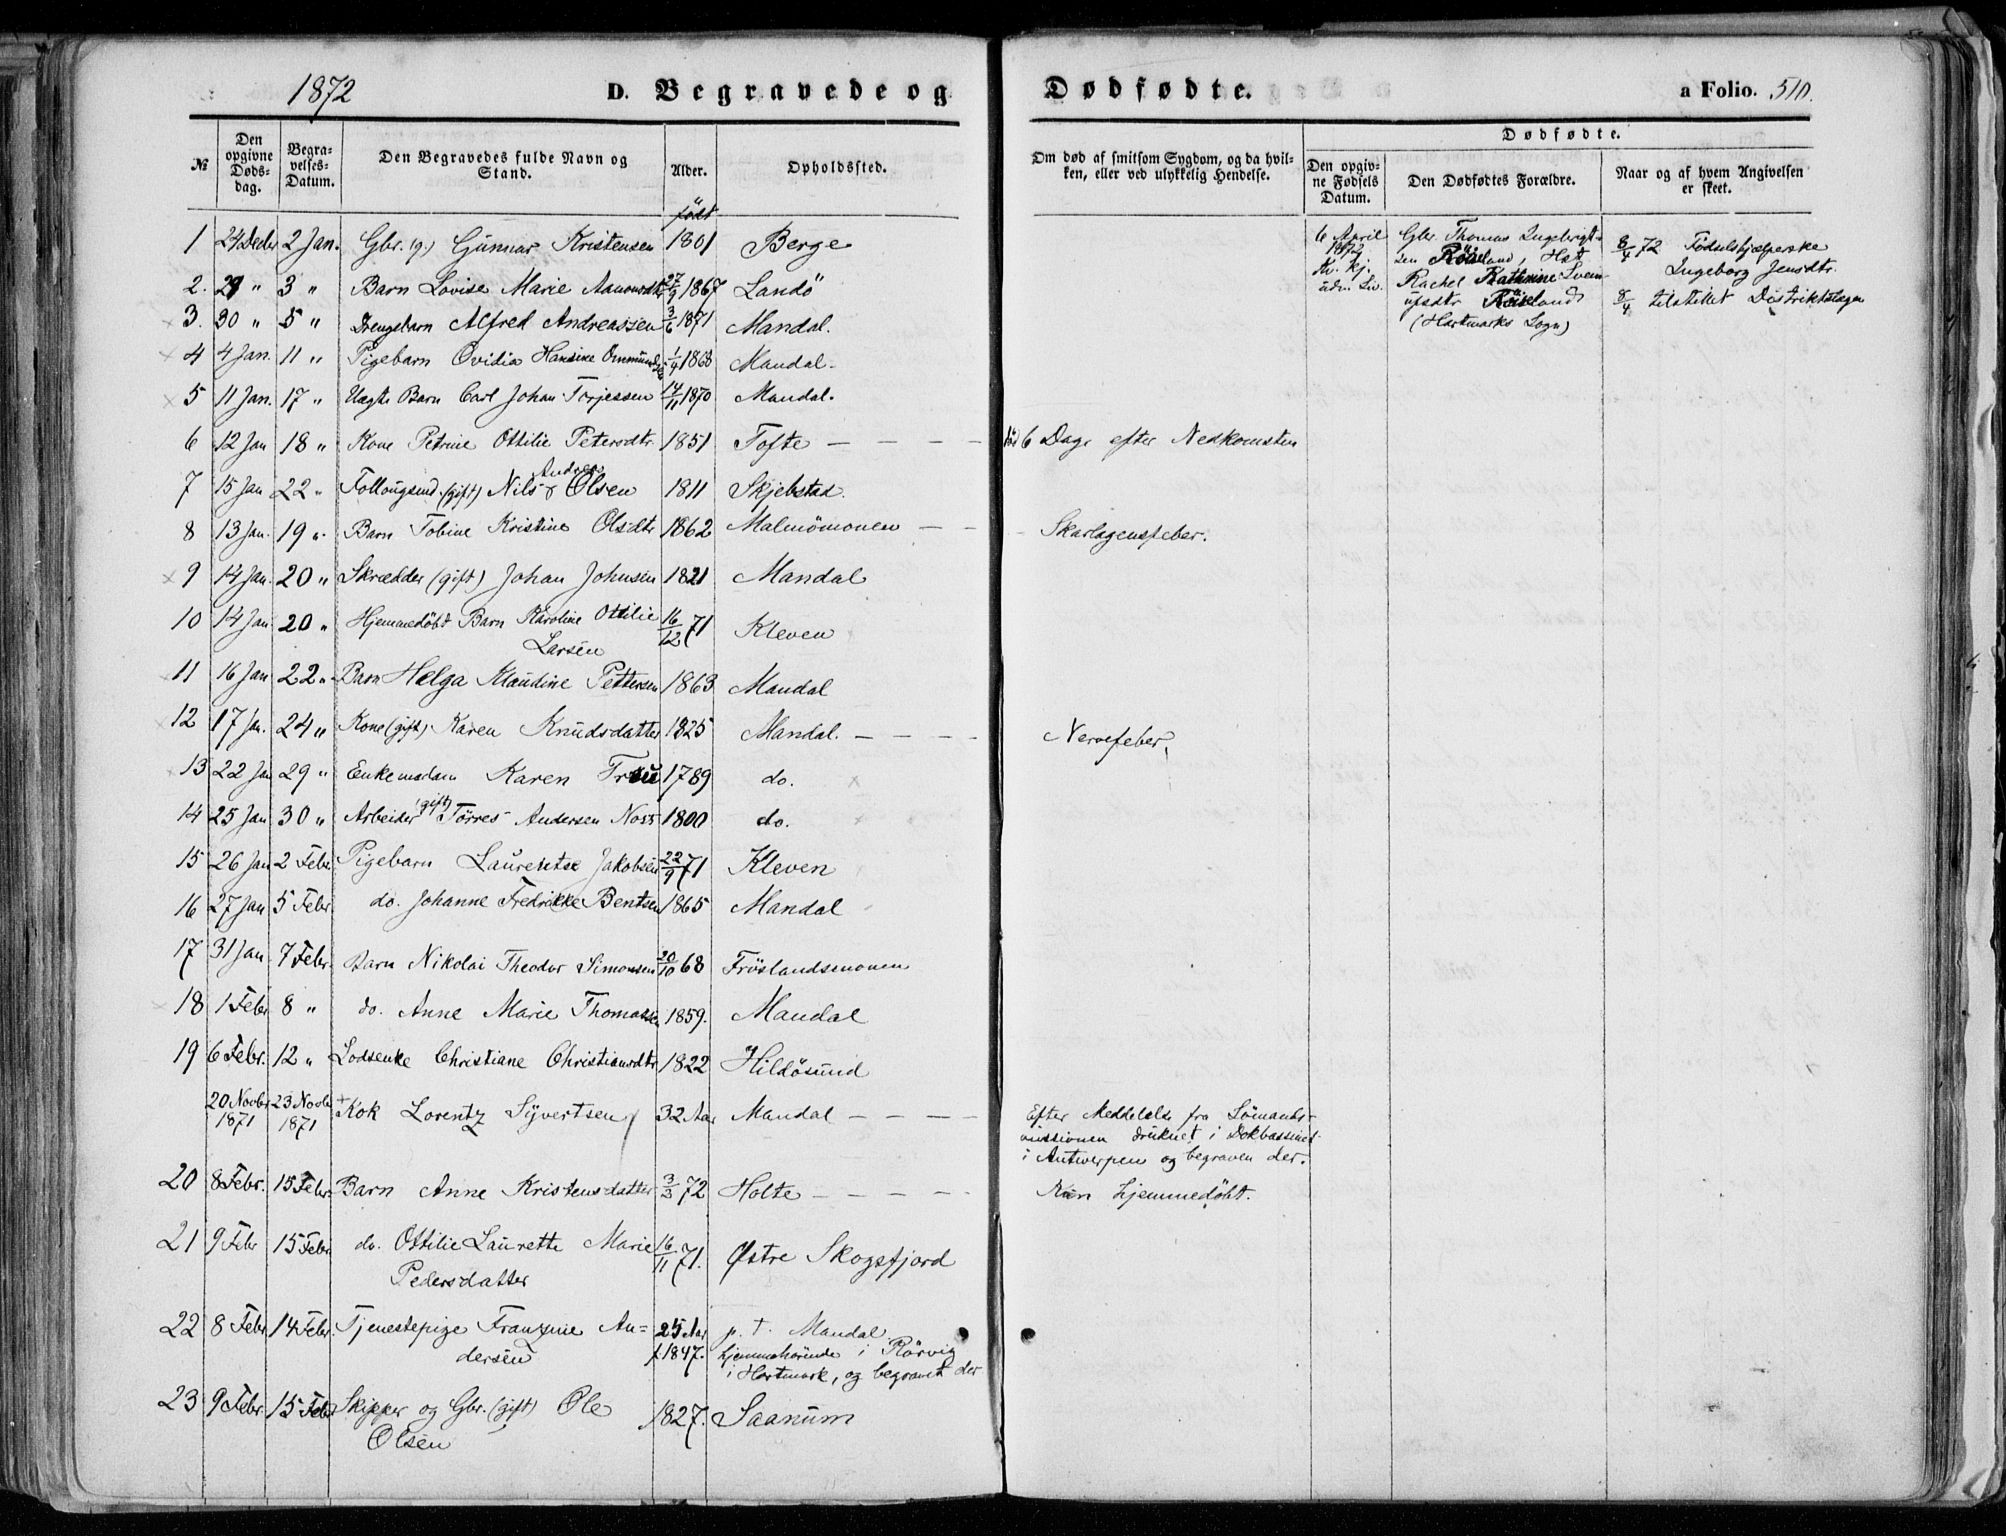 1872 D. Begravede og Dødfødte. a Folio. 510.
№ Den opgivne Døds-dag. Begra-velses-Datum. Den Begravedes fulde Navn og Stand. Alder. Opholdssted. Om død af smitsom Sygdom, og da hvil-ken, eller ved ulykkelig Hendelse. Dødfødte. Den opgiv-ne Fødsels Datum. Den Dødfødtes Forældre. Naar og af hvem Angivelsen er skeet.
født
1 Decbr 2 Jan. Gbr. (g.) Gunnar Kristensen 1801 Berge
2. 29 " 3 " Barn Lovise Marie 27/9 1867 Landö
3. 30 " 5 " Drengebarn Alfred Andreassen 3/6 1871 Mandal.
4 4 Jan. 11 " Pigebarn Ovidia Hansine 1868 Mandal.
5 11 Jan. 17 " Uægte Barn Carl Johan Torjessen 14/11 1870 Mandal.
6 12 Jan 18 " Kone Petrine Ottilie Petersdtr 1851 Tofte — — — — 6 Dage efter Nedkomsten
Andreas
7 15 Jan 22 " (gift) Nils Olsen 1811 Skjebstad.
8 13 Jan. 19 " Barn Tobine Kristine Olsdtr 1862 Malmömonen — — Skarlagensfeber.
9 14 Jan. 20 " Skrædder (gift) Johan Johnsen 1821 Mandal
10 14 Jan 20 " Hjemmedöbt Barn Karoline Ottilie 16/12 71 Kleven
Larsen
11 16 Jan 22 " Barn Helga Klaudine Pettersen 1863 Mandal
12 17 Jan. 24 " Kone (gift) Karen Knudsdatter 1825 Mandal. — — — — Nervefeber.
13 22 Jan 29 " Enkemadam Karen 1789 do.
14 25 Jan 30 " Arbeider (gift) Törres Andersen Noss 1800 do.
15 26 Jan 2 Febr. Pigebarn Laurentse Jakobsen 22/9 71 Kleven
16 27 Jan 5 Febr. do. Johanne Fredrikke Bentsen 1865 Mandal
17 31 Jan 7 Febr. Barn Nikolai Theodor Simonsen 20/10 68 Fröslandsmonen
18 1 Febr 8 " do. Anne Marie Thomassen 1859. Mandal
19 6 Febr. 12 " Lodsenke Christiane Christiansdtr 1822 Hildösund
20 Novbr 1871 23 Novbr 1871 Kok Lorentz Syvertsen 32 Aar Mandal — — — Efter Meddelelse fra Sömands-
missionen druknet i Dokbassinet
i Antwerpen og begraven der.
20 8 Febr. 15 Febr. Barn Anne Kristensdatter 72 Holte — — — — Kun hjemmedöbt.
21 9 Febr 15 Febr do. Ottilie Laurette Marie 16/11 71. Østre Skogsfjord
Pedersdatter
22 8 Febr 14 Febr. Tjenestepige Franzine An- 25 Aar p. t. Mandal
dersen f. 1847. hjemmehörende i Rörvig
i Hartmark, og begravet der
23 9 Febr. 15 Febr Skipper og Gbr. (gift) Ole 1827. Saanum
Olsen
6 April 1872 Kv. kj.
Gbr. Thomas Ingebrigt-
sen Röiseland, Hst
Rachel Kathrine Svein-
Röiseland
(Hartmarks Sogn)
8/4 72 Födselshjælperske
Ingeborg Jensdtr.
8/4 tilstillet Distriktslægen